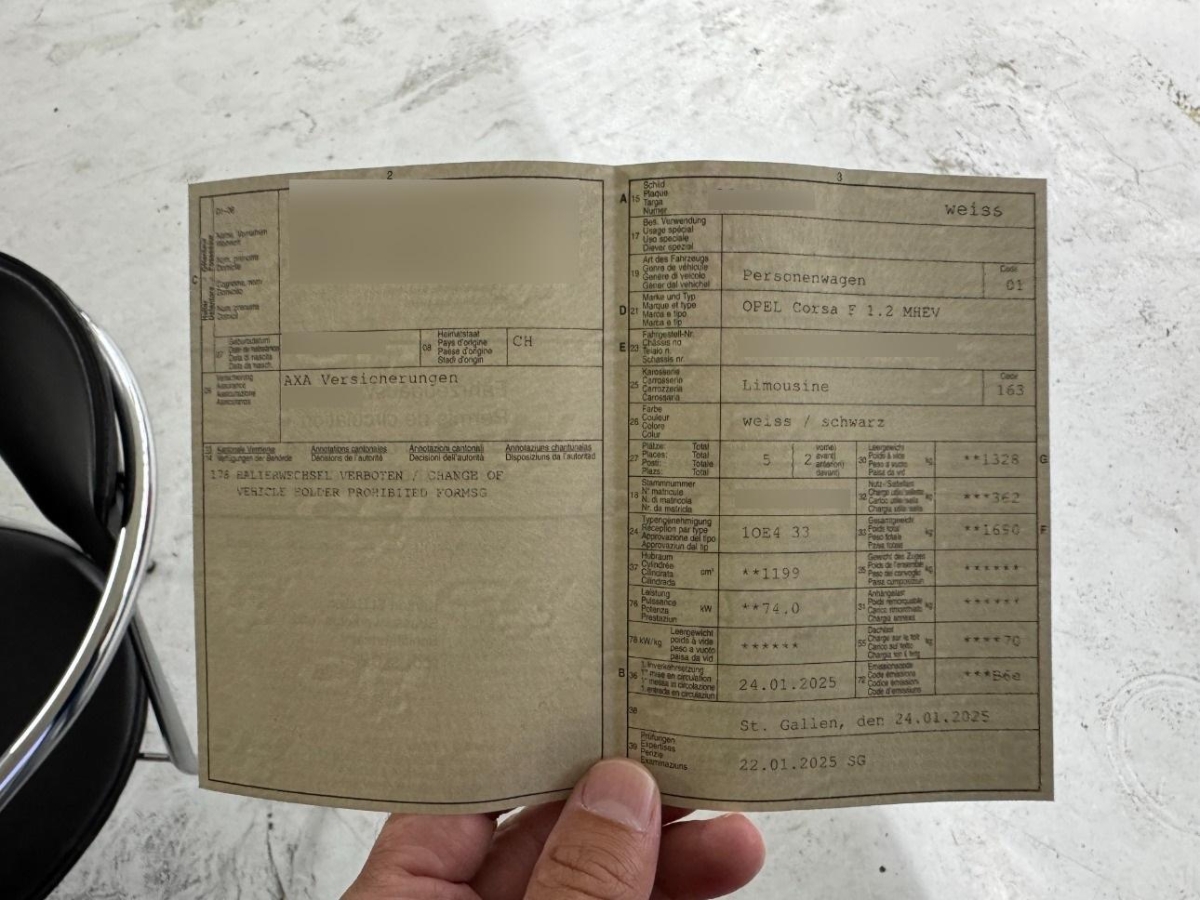 2
C
Name, Vornamen
Nom, prénoms
Domicile
Cognome, nomi
Domicilio
Num, prenums
Domicil
Geburtsdatum
Date de naissance
Data di nascita
Data da nasch.
08
Heimatstaat
Pays d'origine
Paese d'origine
Stadi d'origin
CH
Versicherung
Assurance
Assicurazione
AXA Versicherungen
Kantonale Vermerke
Verfügungen der Behörde
Annotations cantonales
Décisions de l'autorité
Annotazioni cantonali
Decisioni dell'autorità
Annotaziuns chantunalas
Disposiziuns da l'autoritad
178 HALTERWECHSEL VERBOTEN / CHANGE OF
VEHICLE HOLDER PROHIBITED FORMSG
3
A
15
Schild
Plaque
Targa
Numer
weiss
17
Bes. Verwendung
Usage spécial
Uso speciale
Diever spezial
19
Art des Fahrzeugs
Genre de véhicule
Genere di veicolo
Gener dal vehichel
Personenwagen
Code
01
D
21
Marke und Typ
Marque et type
Marca e tipo
Marca e tip
OPEL Corsa F 1.2 MHEV
E
23
Fahrgestell-Nr.
Châssis no
Telaio n.
Schassis nr.
25
Karosserie
Carrosserie
Carrozzeria
Carossaria
Limousine
Code
163
26
Farbe
Couleur
Colore
Colur
weiss / schwarz
27
Plätze: Total
Places: Total
Posti: Totale
Plazs: Total
5
2
vorne)
avant)
anteriori)
davant)
30
Leergewicht
Poids à vide
Peso a vuoto
Paisa da vid
kg
**1328
G
18
Stammnummer
N° matricule
N. di matricola
Nr. da matricla
32
kg
***362
24
Typengenehmigung
Réception par type
Approvazione del tipo
Approvaziun dal tip
10E4 33
33
Gesamtgewicht
Poids total
Peso totale
Paisa totala
kg
**1690
F
37
Hubraum
Cylindrée
Cilindrata
Cilindrada
cm³
**1199
35
Gewicht des Zuges
Poids de l'ensemble
Peso del convoglio
Paisa cumposiziun
kg
******
76
Leistung
Puissance
Potenza
Prestaziun
kW
**74.0
31
Anhängelast
Poids remorquable
kg
******
78
kW/kg
Leergewicht
poids à vide
peso a vuoto
paisa da vid
******
55
Dachlast
Charge sur le toit
Carico sul tetto
kg
****70
B
36
1. Inverkehrsetzung
1re mise en circulation
1a messa in circolazione
1. entrada en circulaziun
24.01.2025
72
Emissionscode
Code émissions
Codice emissioni
Code d'emissiuns
***B6e
38
St. Gallen, den 24.01.2025
39
Prüfungen
Expertises
Perizie
Examinaziuns
22.01.2025 SG